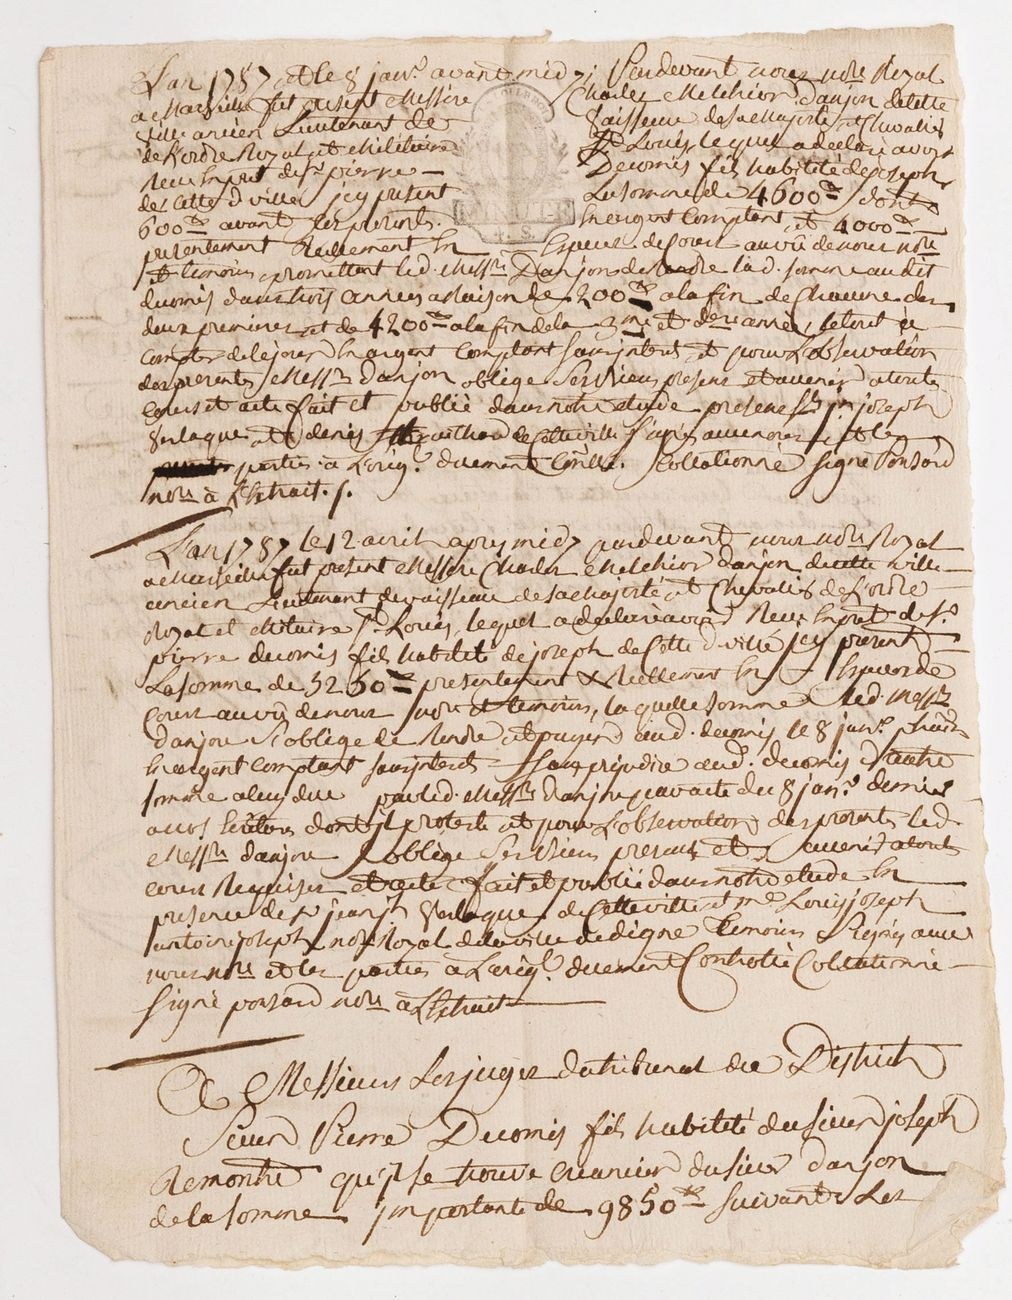 L'an 1787 et le 8 janv.r avant midy Pardevant nous no.re Royal
a Marseille fut present Messire Charles Melchior d'anjon de cette
ville ancien Lieutenant de Vaisseau de sa Majesté et Chevalier
de l'ordre Royal et Militaire St Louis, lequel a declaré avoir
Receu en pret de Sr pierre Decomis fils habilité de joseph
de cette d ville jcy present La somme de 4600 dont
600 avant les presentes en argent comptant, et 4000
presentement Reellement En Especes de Cours au vû de nous no.re
et temoins, promettant led. Mess.re D'anjon de Rendre lad. somme audit
decomis dans trois années a Raison de 200 a la fin de Chacune des
deux premieres et de 4200 a la fin de la 3me et der.re année, le tout a
compter de ce jour En argent comptant sans jnterets, et pour L'observation
des presentes Mess.re d'anjon oblige ses Biens presens et avenir a toutes
Cours et acte fait et publié dans notre etude presens Sr jn joseph
et denis de cette ville signés avec nous et les
parties a L'orig.l duement Collationné signé Ponsard
no.re à L'Extrait.
L'an 1787 le 12 avril apres midy pardevant nous no.re Royal
a Marseille fut present Messire Charles Melchior D'anjon de cette ville
ancien Lieutenant de vaisseau de sa Majesté et Chevalier de L'ordre
Royal et Militaire St Louis, lequel a declaré avoir Receu En pret de Sr
pierre decomis fils habilité de joseph de Cette d ville jcy present
La somme de 5250 presentement & Reellement En Especes de
Cours au vû de nous no.re et temoins, laquelle somme led. Mess.re
d'anjon s'oblige de Rendre et payer aud. decomis le 8 janv.r prochain
En argent comptant sans jnterets sans prejudice aud. decomis d'autre
somme a luy due par led. Mess.re D'anjon par acte du 8 janv.r dernier
a nos Ecritures dont jl proteste et pour L'observation des presentes led.
Mess.re d'anjon oblige ses Biens presens et avenir a toutes
cours Requises et acte fait et publié dans notre etude En
presence de Sr jean jh de Cette ville et Me Louis joseph
antoine joseph no.re Royal de la ville de digne temoins signés avec
nous no.re et les parties à L'orig.l duement Controllé Collationné
signé ponsard no.re à L'Extrait
A Messieurs Les juges du tribunal du District
Sieur Pierre Decomis fils habilité du sieur joseph
Remontre qu'jl se trouve creancier du sieur d'anjon
de la somme jmportante de 9850 suivant Les